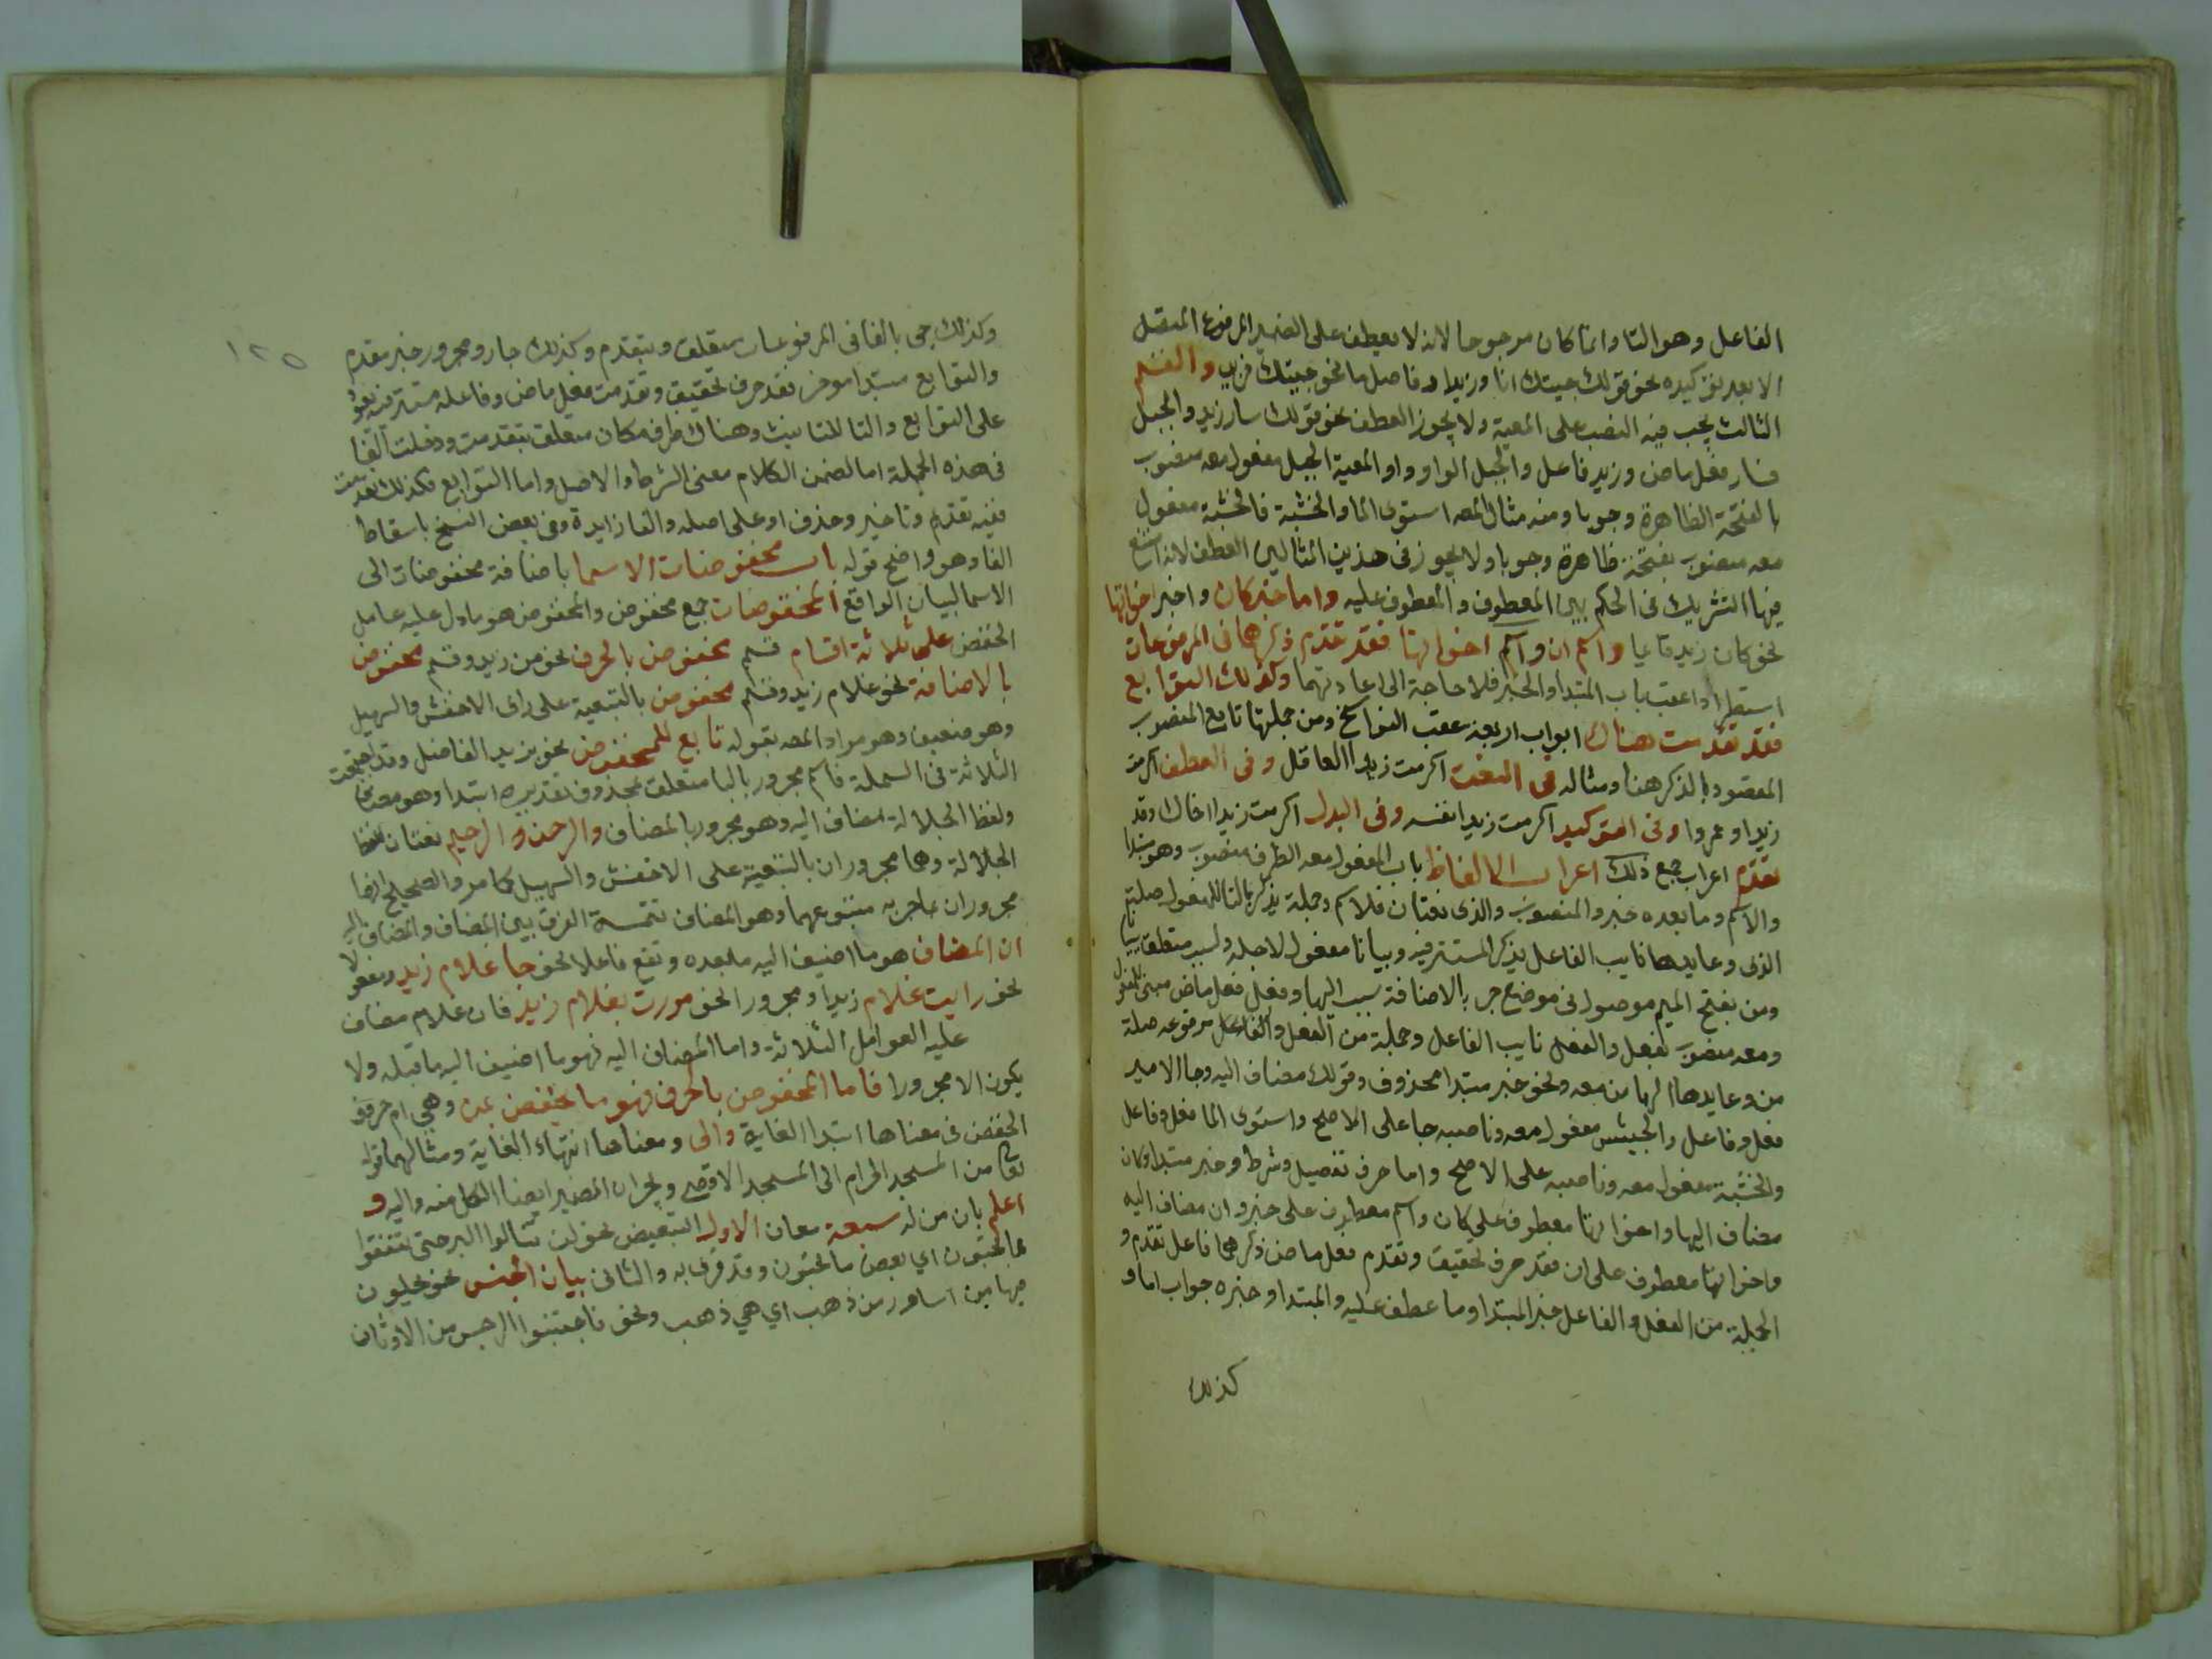 الفاعل وهو التا وانما كان مرجوحا لانه لا يعطف على الضمير المرفوع المتصل
الا بعد توكيده نحو قولك جيتك انا وزيدا او فاصل ما نحو جيتك وزيد والقسم
الثالث يجب فيه النصب على المعية ولا يجوز العطف نحو قولك سار زيد والجبل
فسار فعل ماض وزيد فاعل والجبل الواو واو المعية الجبل مفعول معه منصوب
بالفتحة الظاهرة وجوبا ومنه مثال المصـ استوى الما والخشبة فالخشبة مفعول
معه منصوب بفتحة ظاهرة وجوبا ولا يجوز فى هذين المثالين العطف لانه امتنع
فيها التشريك فى الحكم بين المعطوف والمعطوف عليه واما خبر كان واخبر اخواتها
نحو كان زيد قايما واسم ان واسم اخواتها فقد تقدم ذكرهما فى المرفوعات
استطرادا عقب باب المبتدا والخبر فلا حاجة الى اعادتهما وكذلك التوابع
فقد تقدمت هناك ابواب اربعة عقب النواسخ ومن جملتها تابع المنصوب
المقصود بالذكر هنا ومثاله فى النعت اكرمت زيدا العاقل وفى العطف اكرمت
زيدا وعمروا وفى التوكيد اكرمت زيدا نفسه وفى البدل اكرمت زيدا اخاك وقد
تقدم اعراب جميع ذلك اعراب الالفاظ باب المفعول معه الظرف منصوب وهو مبتدا
والاسم وما بعده خبر والمنصوب والذى نعتان للاسم وجملة يذكر بالتا للمفعول صلة
الذى وعايدها نايب الفاعل يذكر المستتر فيه وبيانا مفعول لاجله ولسبب متعلق ببيانا
ومن بفتح الميم موصول فى موضع جر بالاضافة سبب اليها وفعل فعل ماض مبنى للمفعول
ومعه منصوب بفعل والفعل نايب الفاعل وجملة من الفعل والفاعل مرفوعه صلة
من وعايدها الها من معه ونحو خبر مبتدا محذوف وقولك مضاف اليه وجا الامير
فعل وفاعل والجيش مفعول معه وناصبه جا على الاصح واستوى الما فعل وفاعل
والخشبة مفعول معه وناصبه على الاصح واما حرف تفصيل وشرط وخبر مبتدا وكان
مضاف اليها واخواتها معطوف على كان واسم معطوف على خبر وان مضاف اليه
واخواتها معطوف على ان فقد حرف تحقيق وتقدم فعل ماض ذكرهما فاعل تقدم و
الجملة من الفعل والفاعل خبر المبتدا وما عطف عليه والمبتدا وخبره جواب اما و
كذلك
١٢٥
وكذلك جى بالفا فى المرفوعات متعلق بتقدم وكذلك جار ومجرور خبر مقدم
والتوابع مبتدا موخر فقد حرف تحقيق وتقدمت فعل ماض وفاعله مستتر فيه يعود
على التوابع والتا للتانيث وهناك ظرف مكان متعلق بتقدمت ودخلت الفا
فى هذه الجملة اما لضمن الكلام معنى الشرط والاصل واما التوابع فكذلك تقدمت
ففيه تقديم وتاخير وحذف او على اصله والفا زايدة وفى بعض النسخ باسقاط
الفا وهو واضح قوله باب مخفوضات الاسما باضافة مخفوضات الى
الاسما لبيان الواقع المخفوضات جمع مخفوض والمخفوض هو ما دل عليه عامل
الخفض على ثلاثة اقسام قسم مخفوض بالحرف نحو من زيد وقسم مخفوض
بالاضافة نحو غلام زيد وقسم مخفوض بالتبعية على راى الاخفش والسهيلى
وهو ضعيف وهو مراد المصـ بقوله تابع للمخفوض نحو بزيد الفاضل وقد اجتمعت
الثلاثة فى البسملة فاسم مجرور بالبا متعلق بمحذوف تقديره ابتدا وهو مضاف
ولفظ الجلالة مضاف اليه وهو مجرور بالمضاف والرحمن والرحيم نعتان للفظ
الجلالة وهما مجروران بالتبعية على الاخفش والسهيلى كما مر والصحيح انهما
مجروران بما جر به متبوعهما وهو المضاف تتمة الفرق بين المضاف والمضاف اليه
ان المضاف هو ما اضيف اليه ما بعده وتقع فاعلا نحو جا غلام زيد ومفعولا
نحو رايت غلام زيد او مجرور النحو مررت بغلام زيد فان غلام مضاف
عليه العوامل الثلاثة واما المضاف اليه فهو ما اضيف اليه ما قبله ولا
يكون الا مجرورا فاما المخفوض بالحرف فهو ما يخفض بمن وهي ام حروف
الخفض فى معناها ابتدا الغاية والى ومعناها انتهاء الغاية ومثالهما قوله
تعالى من المسجد الحرام الى المسجد الاقصى ويجران الضمير ايضا الكل منه واليه و
اعلم بان من له سبعة معان الاول التبعيض نحو لن تنالوا البر حتى تنفقوا
مما تحبون اي بعض ما تحبون وقد قرى به والثانى بيان الجنس نحو يحلون
فيها من اساور من ذهب اي هي ذهب ونحو فاجتنبوا الرجس من الاوثان